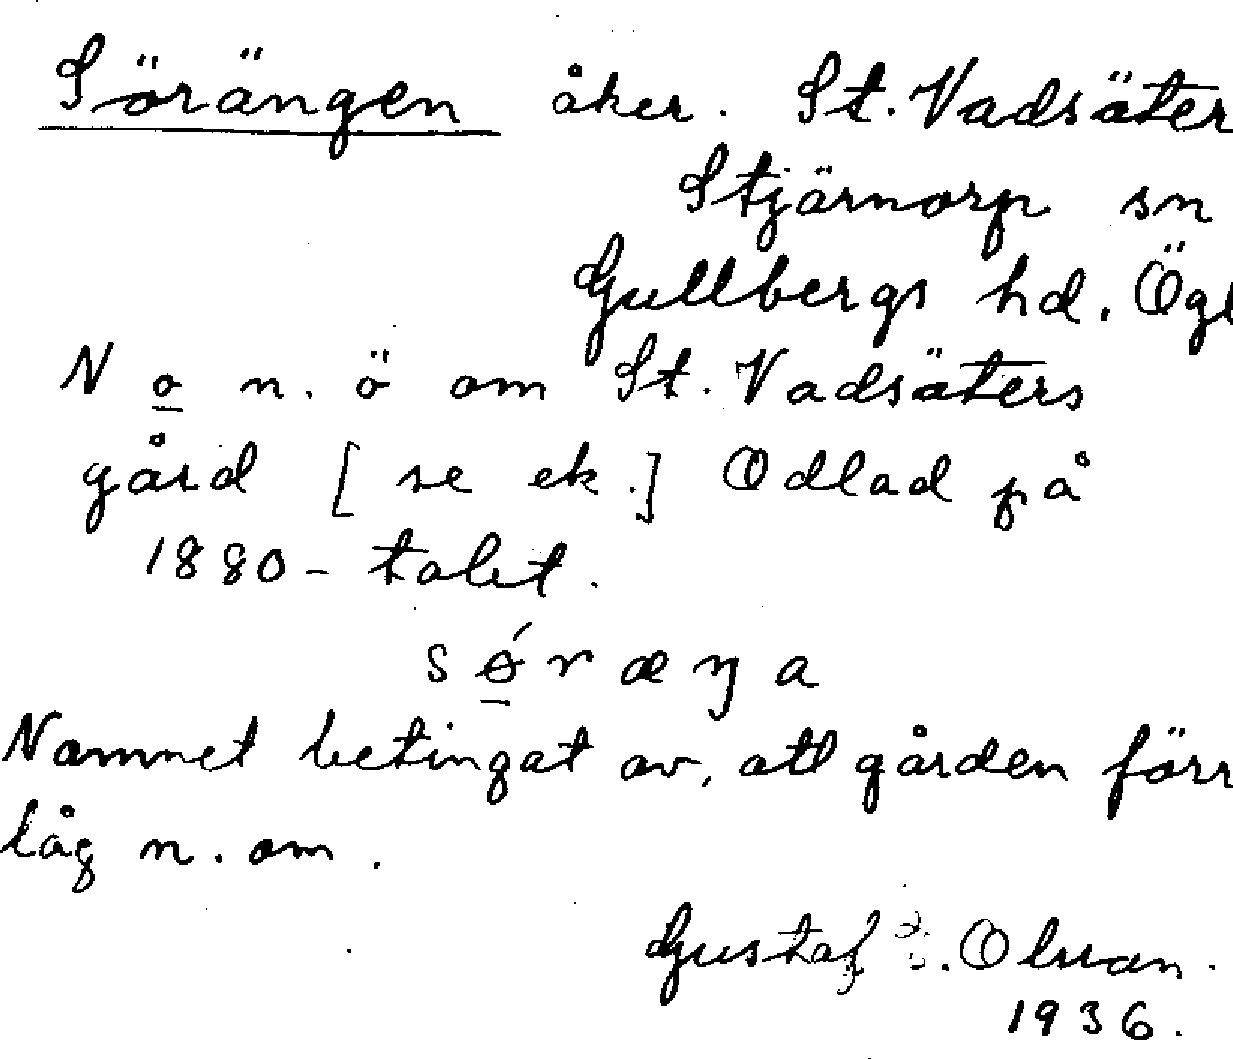 Sörängen åker. St. Vadsäter
Stjärnorp sn
Gullbergs hd. Ögl
N o n. ö om St. Vadsäters
gård [se ek.] Odlad på
1880-talet.
sǿræŋa
Namnet betingat av, att gården förr
låg n. om.
Gustaf Olsson.
1936.